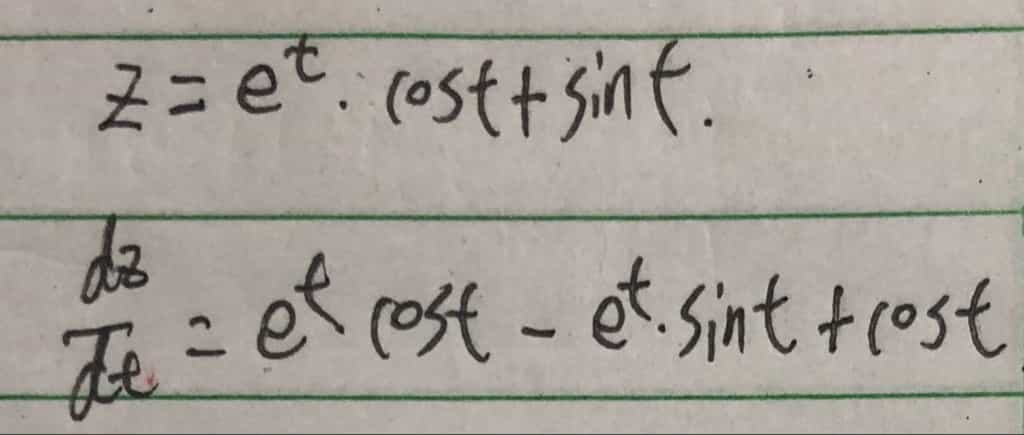 z = e^t · cost + sint.
dz/dt = e^t cost - e^t · sint + cost